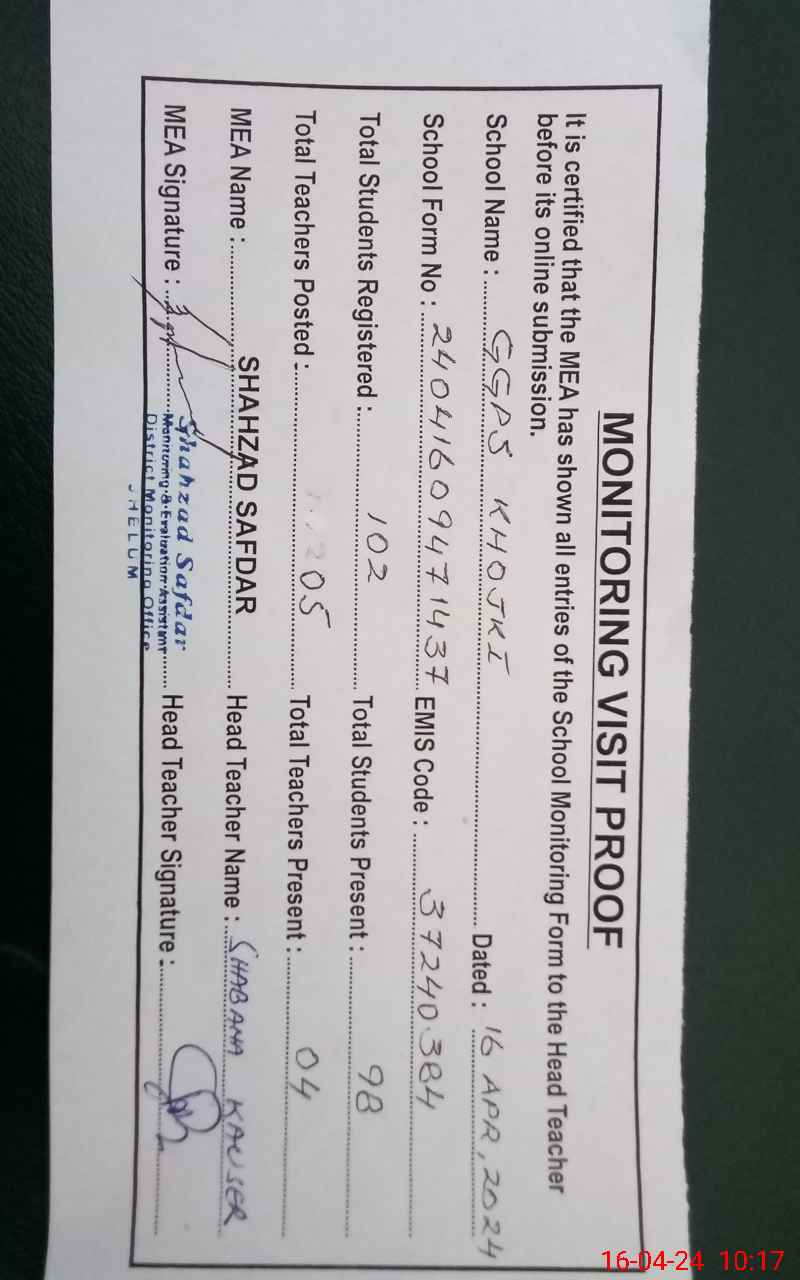 MONITORING VISIT PROOF
It is certified that the MEA has shown all entries of the School Monitoring Form to the Head Teacher
before its online submission.
School Name : GGPS KHOJKI Dated : 16 APR, 2024
School Form No : 24041609471437 EMIS Code : 37240384
Total Students Registered : 102 Total Students Present : 98
Total Teachers Posted : 05 Total Teachers Present : 04
MEA Name : SHAHZAD SAFDAR Head Teacher Name : SHABANA KAUSER
MEA Signature : Head Teacher Signature :
Shahzad Safdar
Monitoring & Evaluation Assistant
District Monitoring Office
JHELUM
16-04-24 10:17